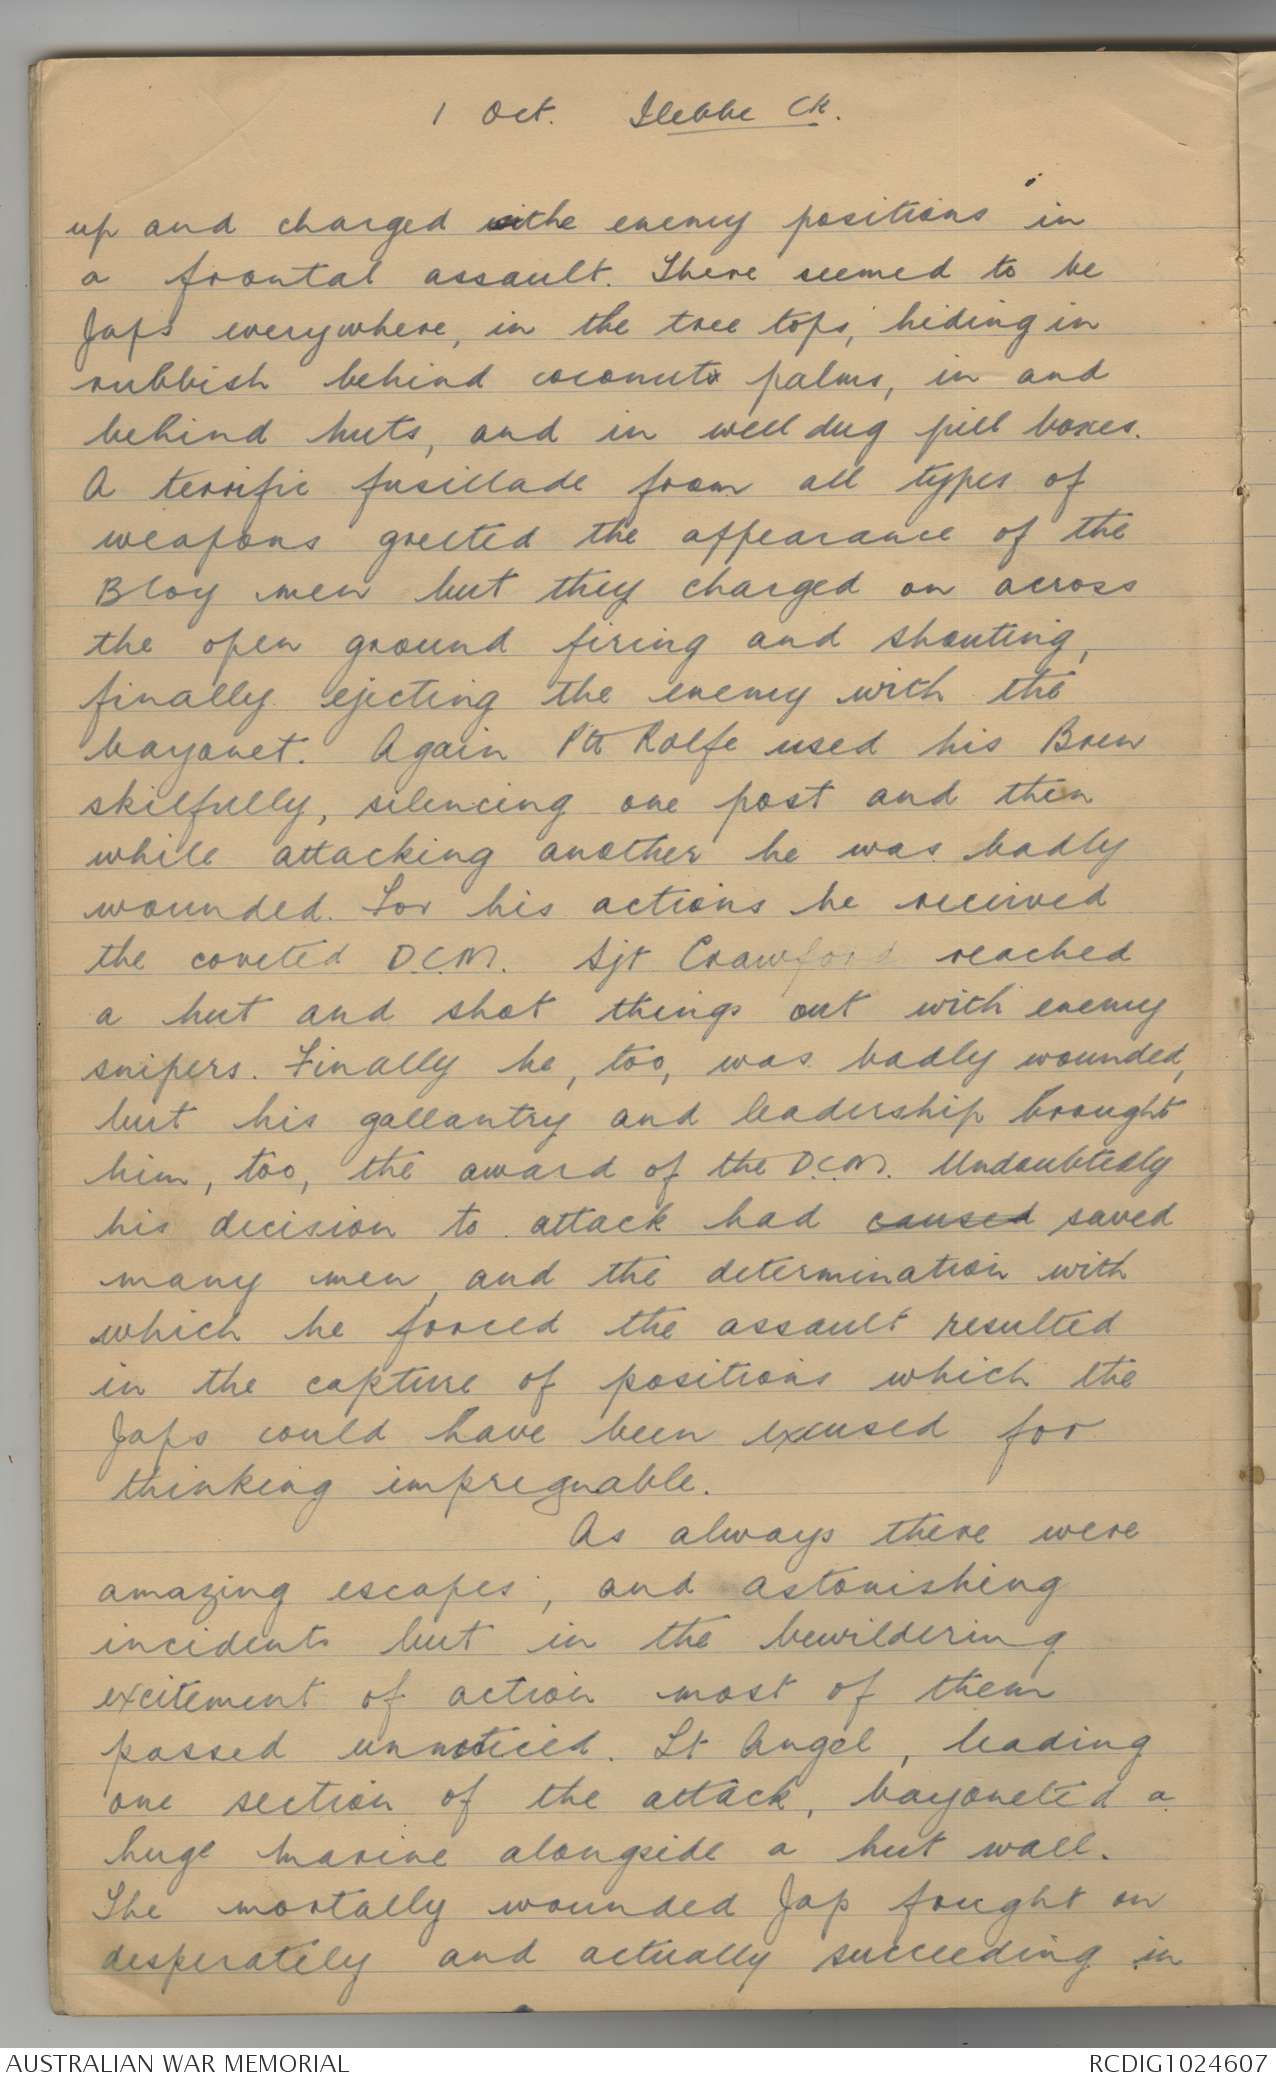 1 Oct. Ilebbe Ck.
up and charged the enemy positions in
a frontal assault. There seemed to be
Japs everywhere, in the tree tops, hiding in
rubbish behind coconut palms, in and
behind huts, and in well dug pill boxes.
A terrific fusillade from all types of
weapons greeted the appearance of the
B Coy men but they charged on across
the open ground firing and shouting,
finally ejecting the enemy with the
bayonet. Again Pte Rolfe used his Bren
skilfully, silencing one post and then
while attacking another he was badly
wounded. For his actions he received
the coveted D.C.M. Sjt Crawford reached
a hut and shot things out with enemy
snipers. Finally he, too, was badly wounded,
but his gallantry and leadership brought
him, too, the award of the D.C.M. Undoubtedly
his decision to attack had caused saved
many men, and the determination with
which he forced the assault resulted
in the capture of positions which the
Japs could have been excused for
thinking impregnable.
As always there were
amazing escapes, and astonishing
incidents but in the bewildering
excitement of action most of them
passed unnoticed. Lt Angel, leading
one section of the attack, bayoneted a
huge marine alongside a hut wall.
The mortally wounded Jap fought on
desperately and actually succeeding in
AUSTRALIAN WAR MEMORIAL
RCDIG1024607